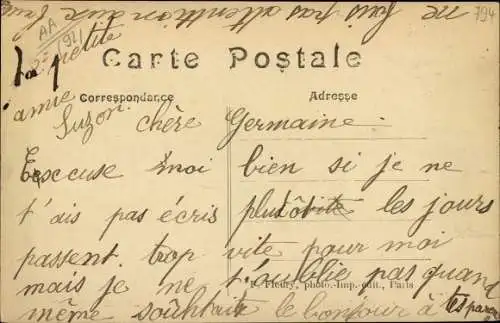 me fait pas attention aux
794
AA
1921
ta petite
amie
Suzon.
Carte Postale
Correspondance
Adresse
chère Germaine.
Excuse moi bien si je ne
t'ais pas écris plutôt les jours
passent trop vite pour moi
F. Fleury, photo.-Imp.-édit., Paris
mais je ne t'oublie pas quand
même souhaite le bonjour à tes parents